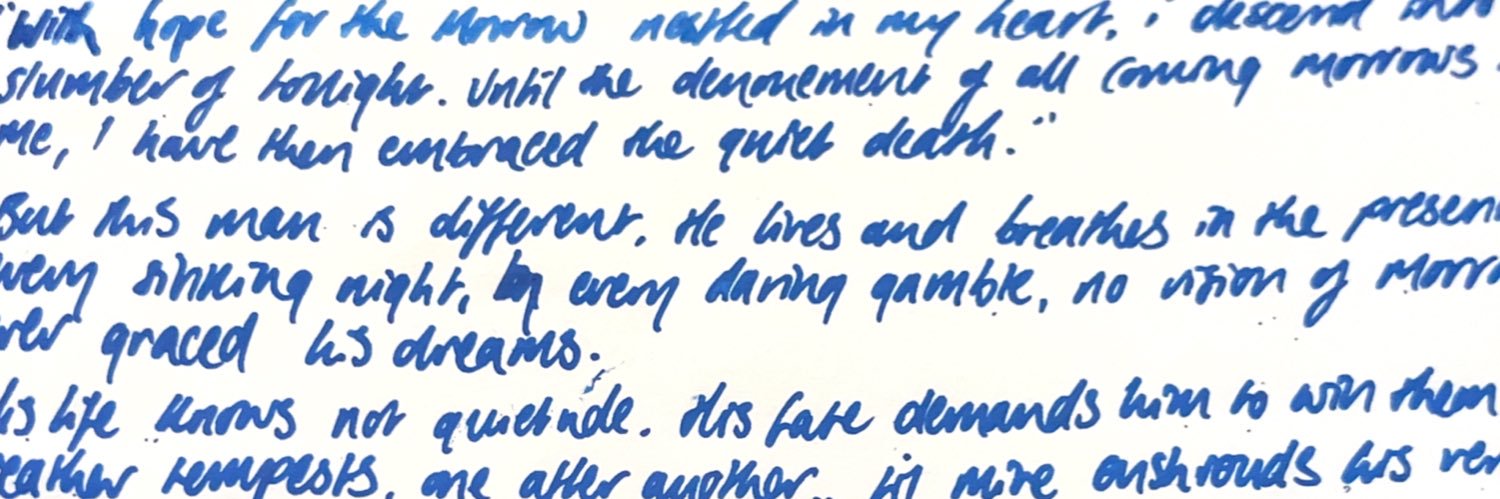 "With hope for the morrow nestled in my heart, i descend into
slumber of tonight. Until the denouement of all coming morrows
me, I have then embraced the quiet death."
But this man is different. He lives and breathes in the present
every sinking night, by every daring gamble, no vision of morro
ver graced his dreams.
is life knows not quietude. His fate demands him to win them
eather tempests, one after another.. til mire enshrouds his ver